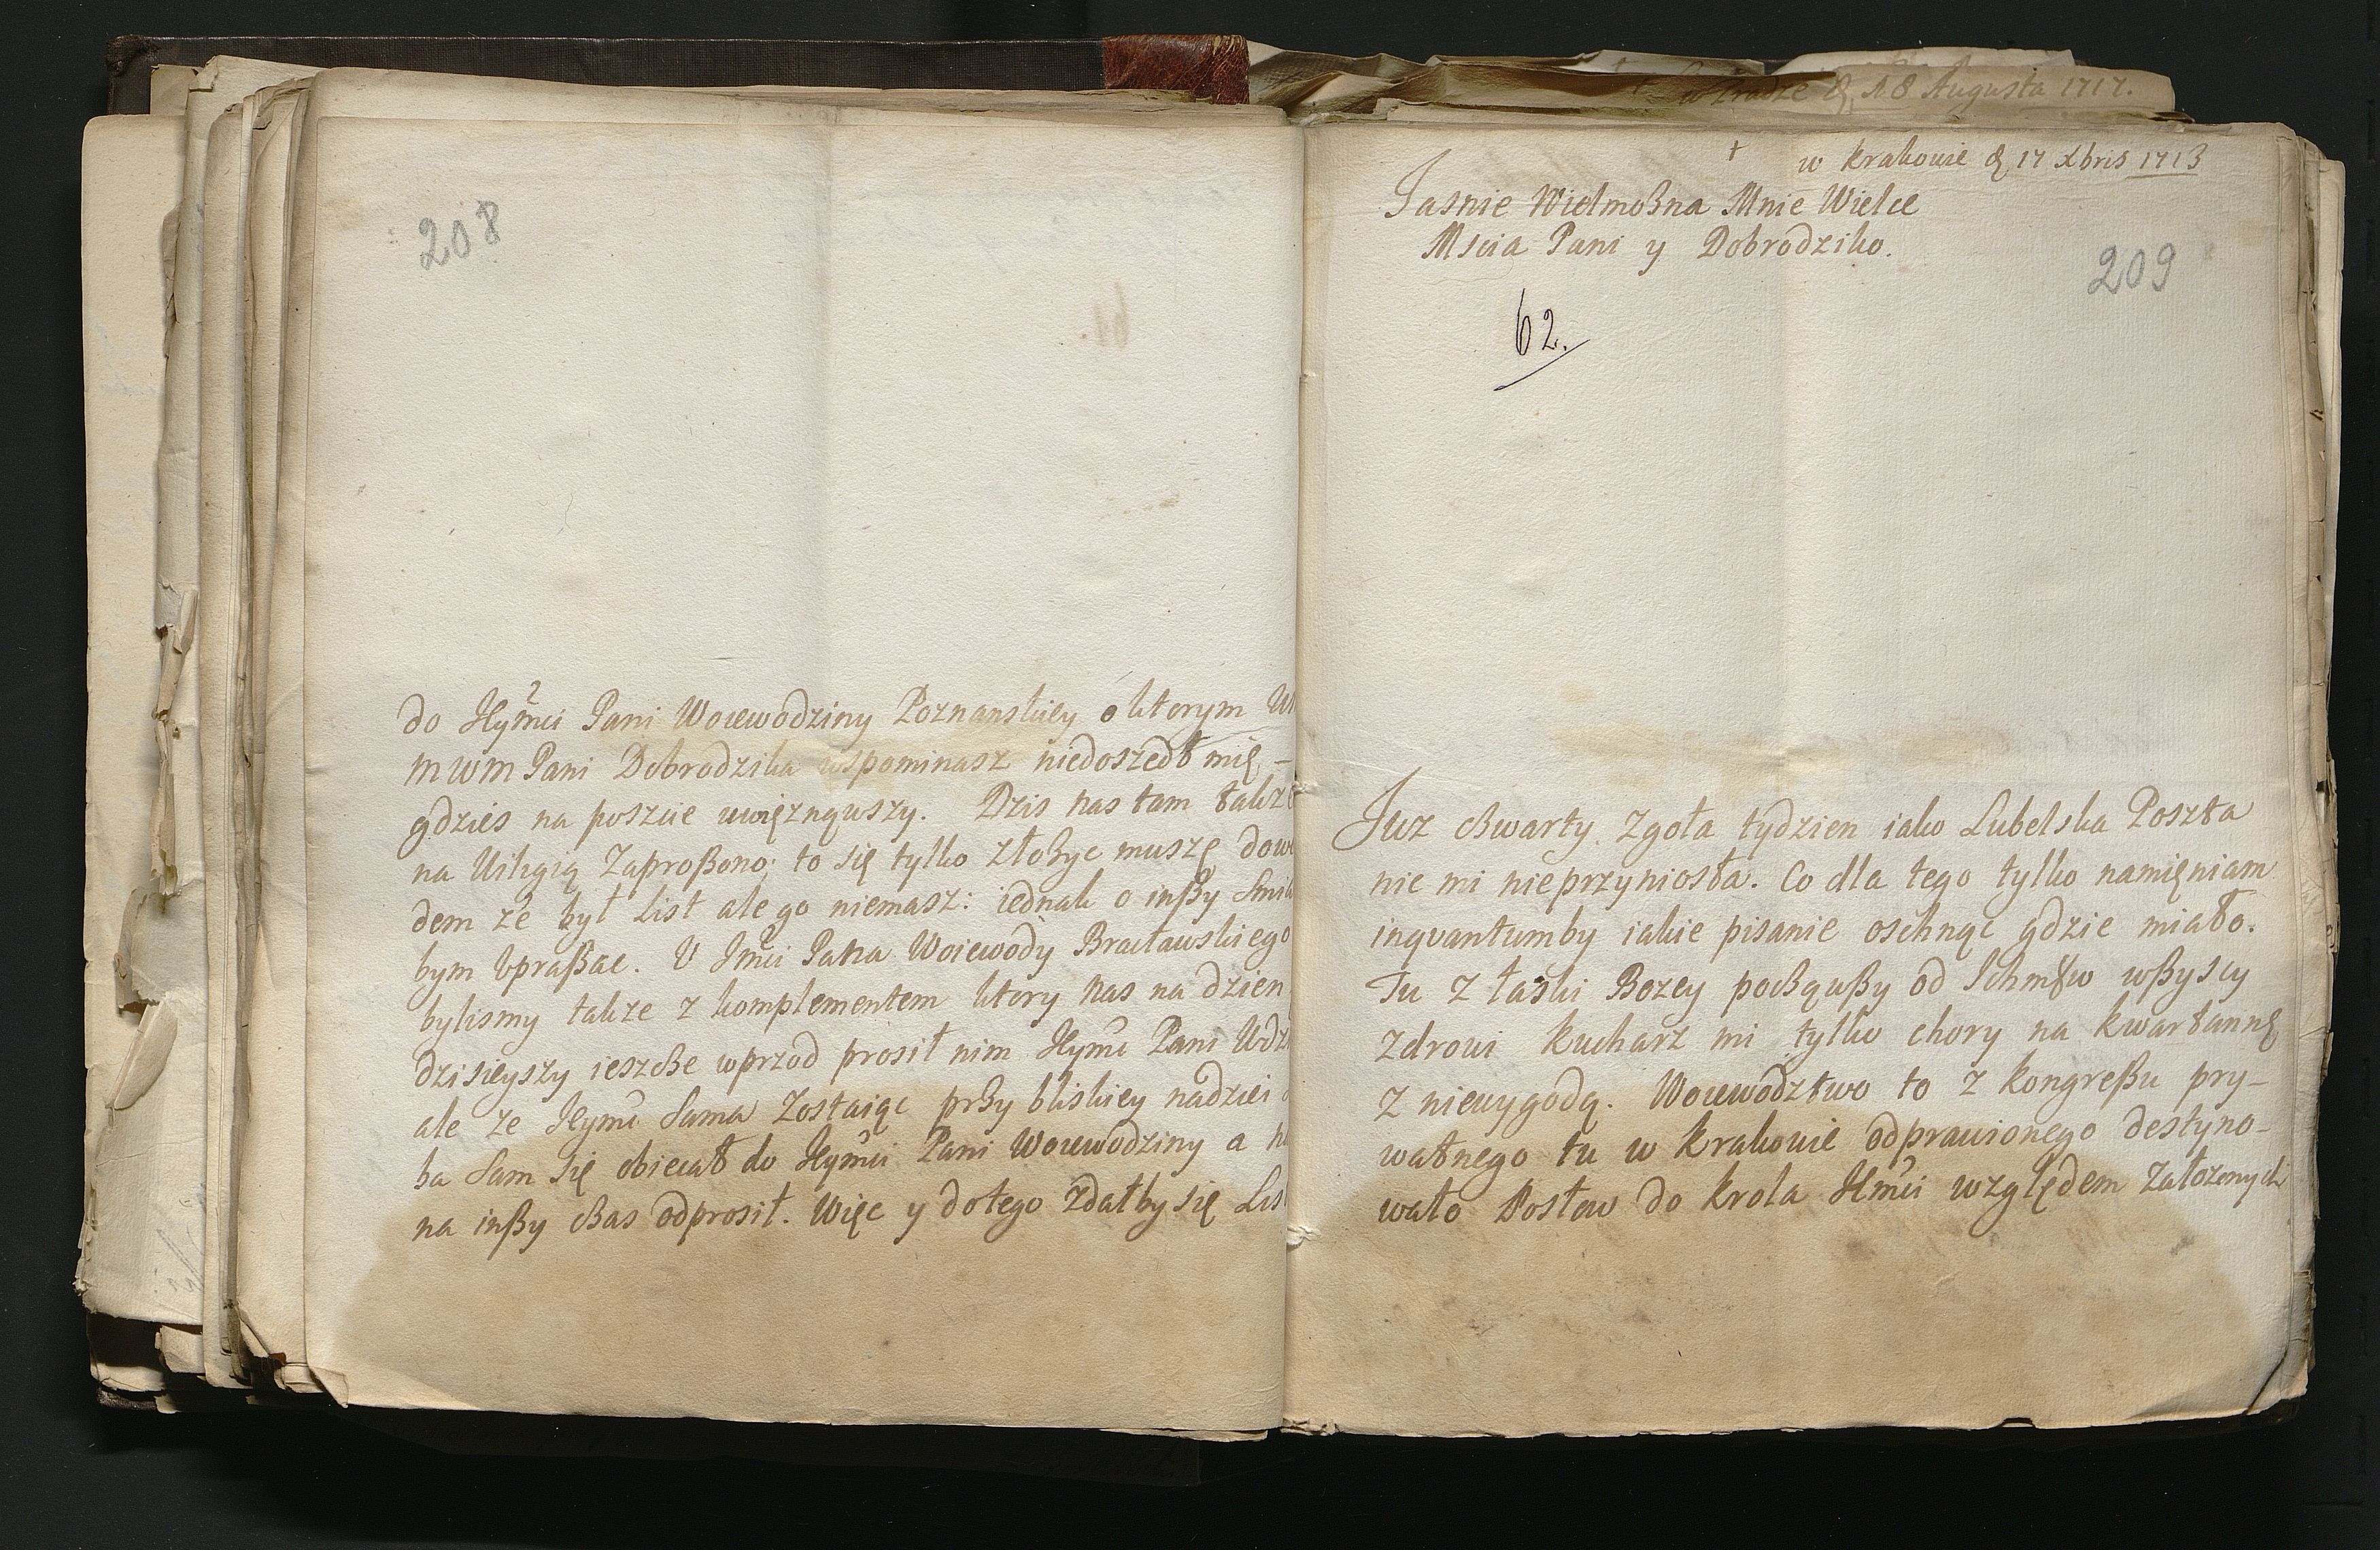 208
do Jeymci Pani Woiewodziny Poznanskiey o ktorym
MWM Pani Dobrodzika wspominasz niedoszedł mię –
gdzies na poszcie uwięznąwszy. Dzis nas tam takze
na Wiligią Zaproßono; to się tylko złoßyc muszę
dem ze był List ale go niemasz: iednak o inßy
bym upraßac. U Jmci Pana Woiewody Bracławskiego
bylismy takze z komplementem ktory nas na dzien
dzisieyszy ieszcße wprzod prosił nim Jeymc Pani
ale ze Jeymc Sama Zostaiąc przy bliskiey nadziei
ba Sam się obiecał do Jeymci Pani Woiewodziny a
na inßy cßas odprosił. Więc y dotego Zdałby się
w Pradze d 18 Augusta 1717.
† w Krakowie d 17 Xbris 1713
Jasnie Wielmoßna Mnie Wielce
Mscia Pani y Dobrodziko.
209
62.
Juz cßwarty Zgoła tydzien iako Lubelska Poszta
nic mi nieprzyniosła. Co dla tego tylko namięniam
inqvantumby iakie pisanie oschnąc gdzie miało.
Tu Z łaski Bozey pocßąwßy od Ichmciow wßyscy
Zdrowi Kucharz mi tylko chory na kwartannę
Z niewygodą. Woiewodztwo to Z kongreßu pry-
watnego tu w Krakowie odprawionego destyno-
wało Posłow do Krola Jmci względem Załozonych